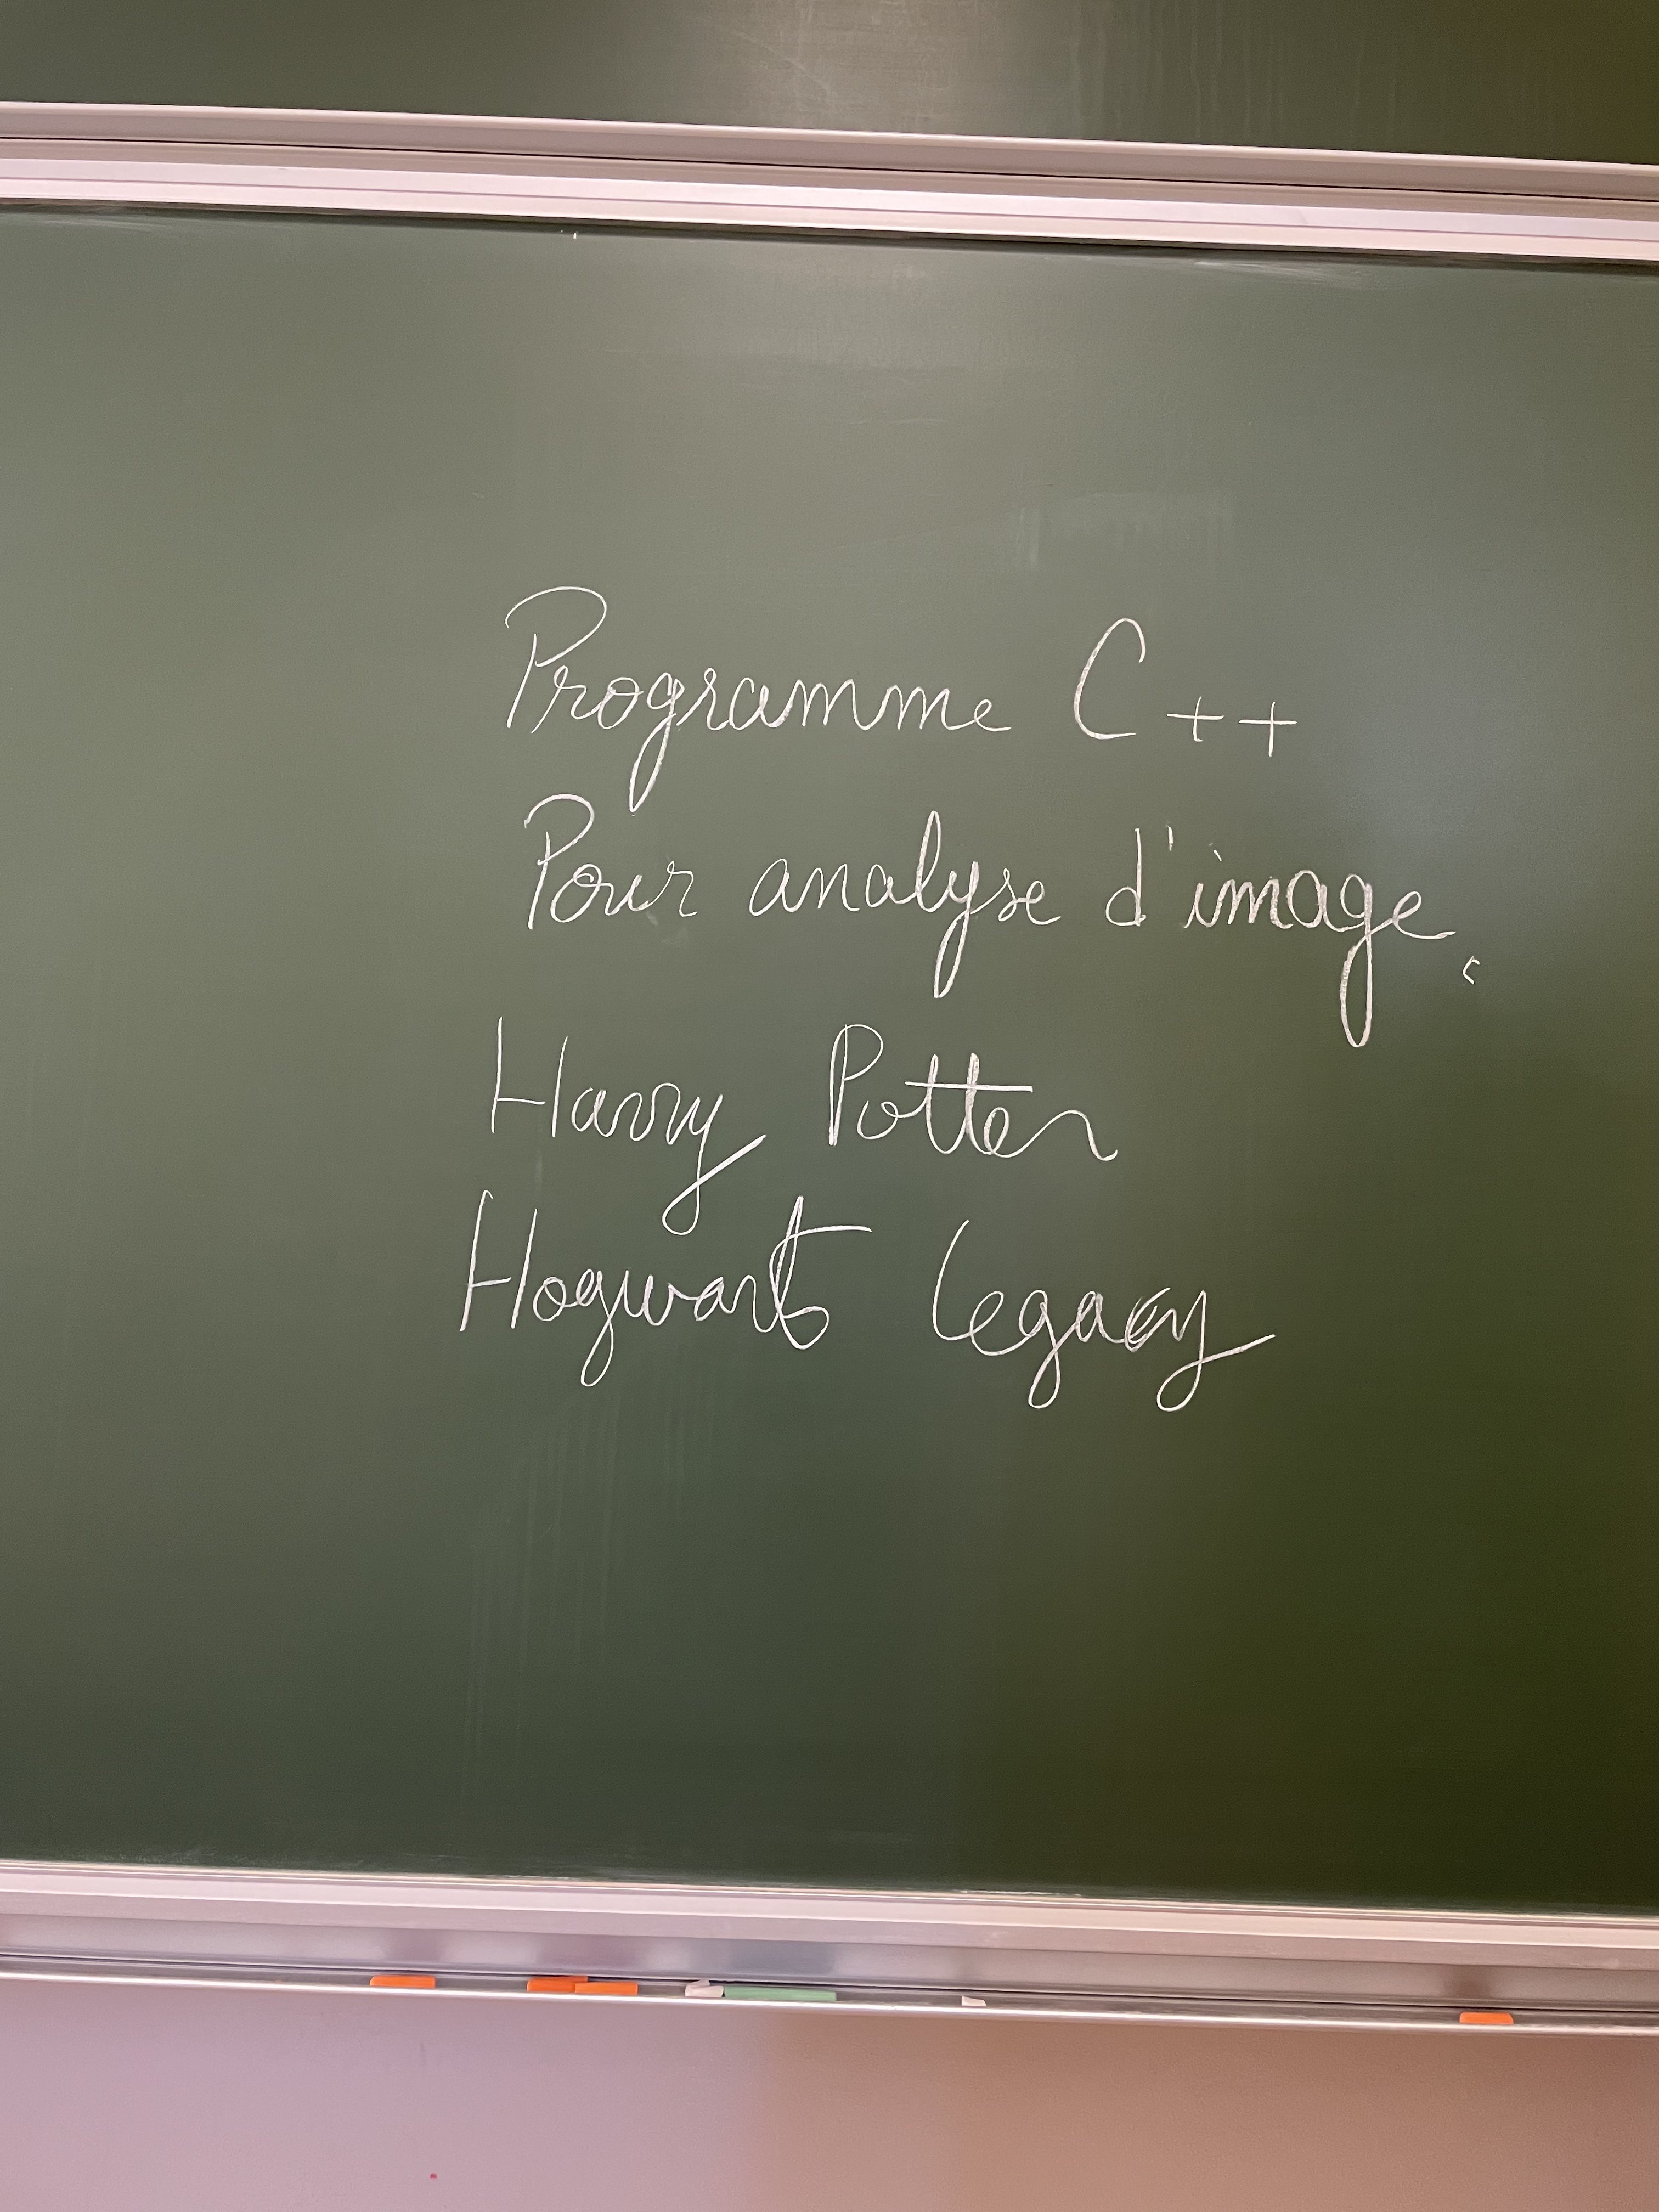 Programme C++
Pour analyse d'image.
Harry Potter
Hogwarts Legacy